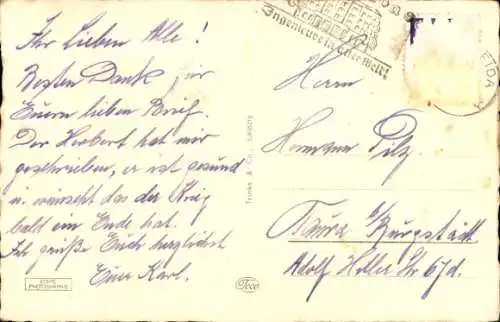 Ihr lieben Alle!
Besten Dank für
Euern lieben Brief.
Der Herbert hat mir
geschrieben, er ist gesund
u. wünscht das der Krieg
bald ein Ende hat.
Ich grüße Euch herzlichst
Euer Karl.
ECHTE
PHOTOGRAPHIE
Trinks & Co., Leipzig
Trco
Ingenieure in aller Welt!
Herrn
Hermann Pilz
Taura b/Burgstädt
Adolf Hitler Str 67d.